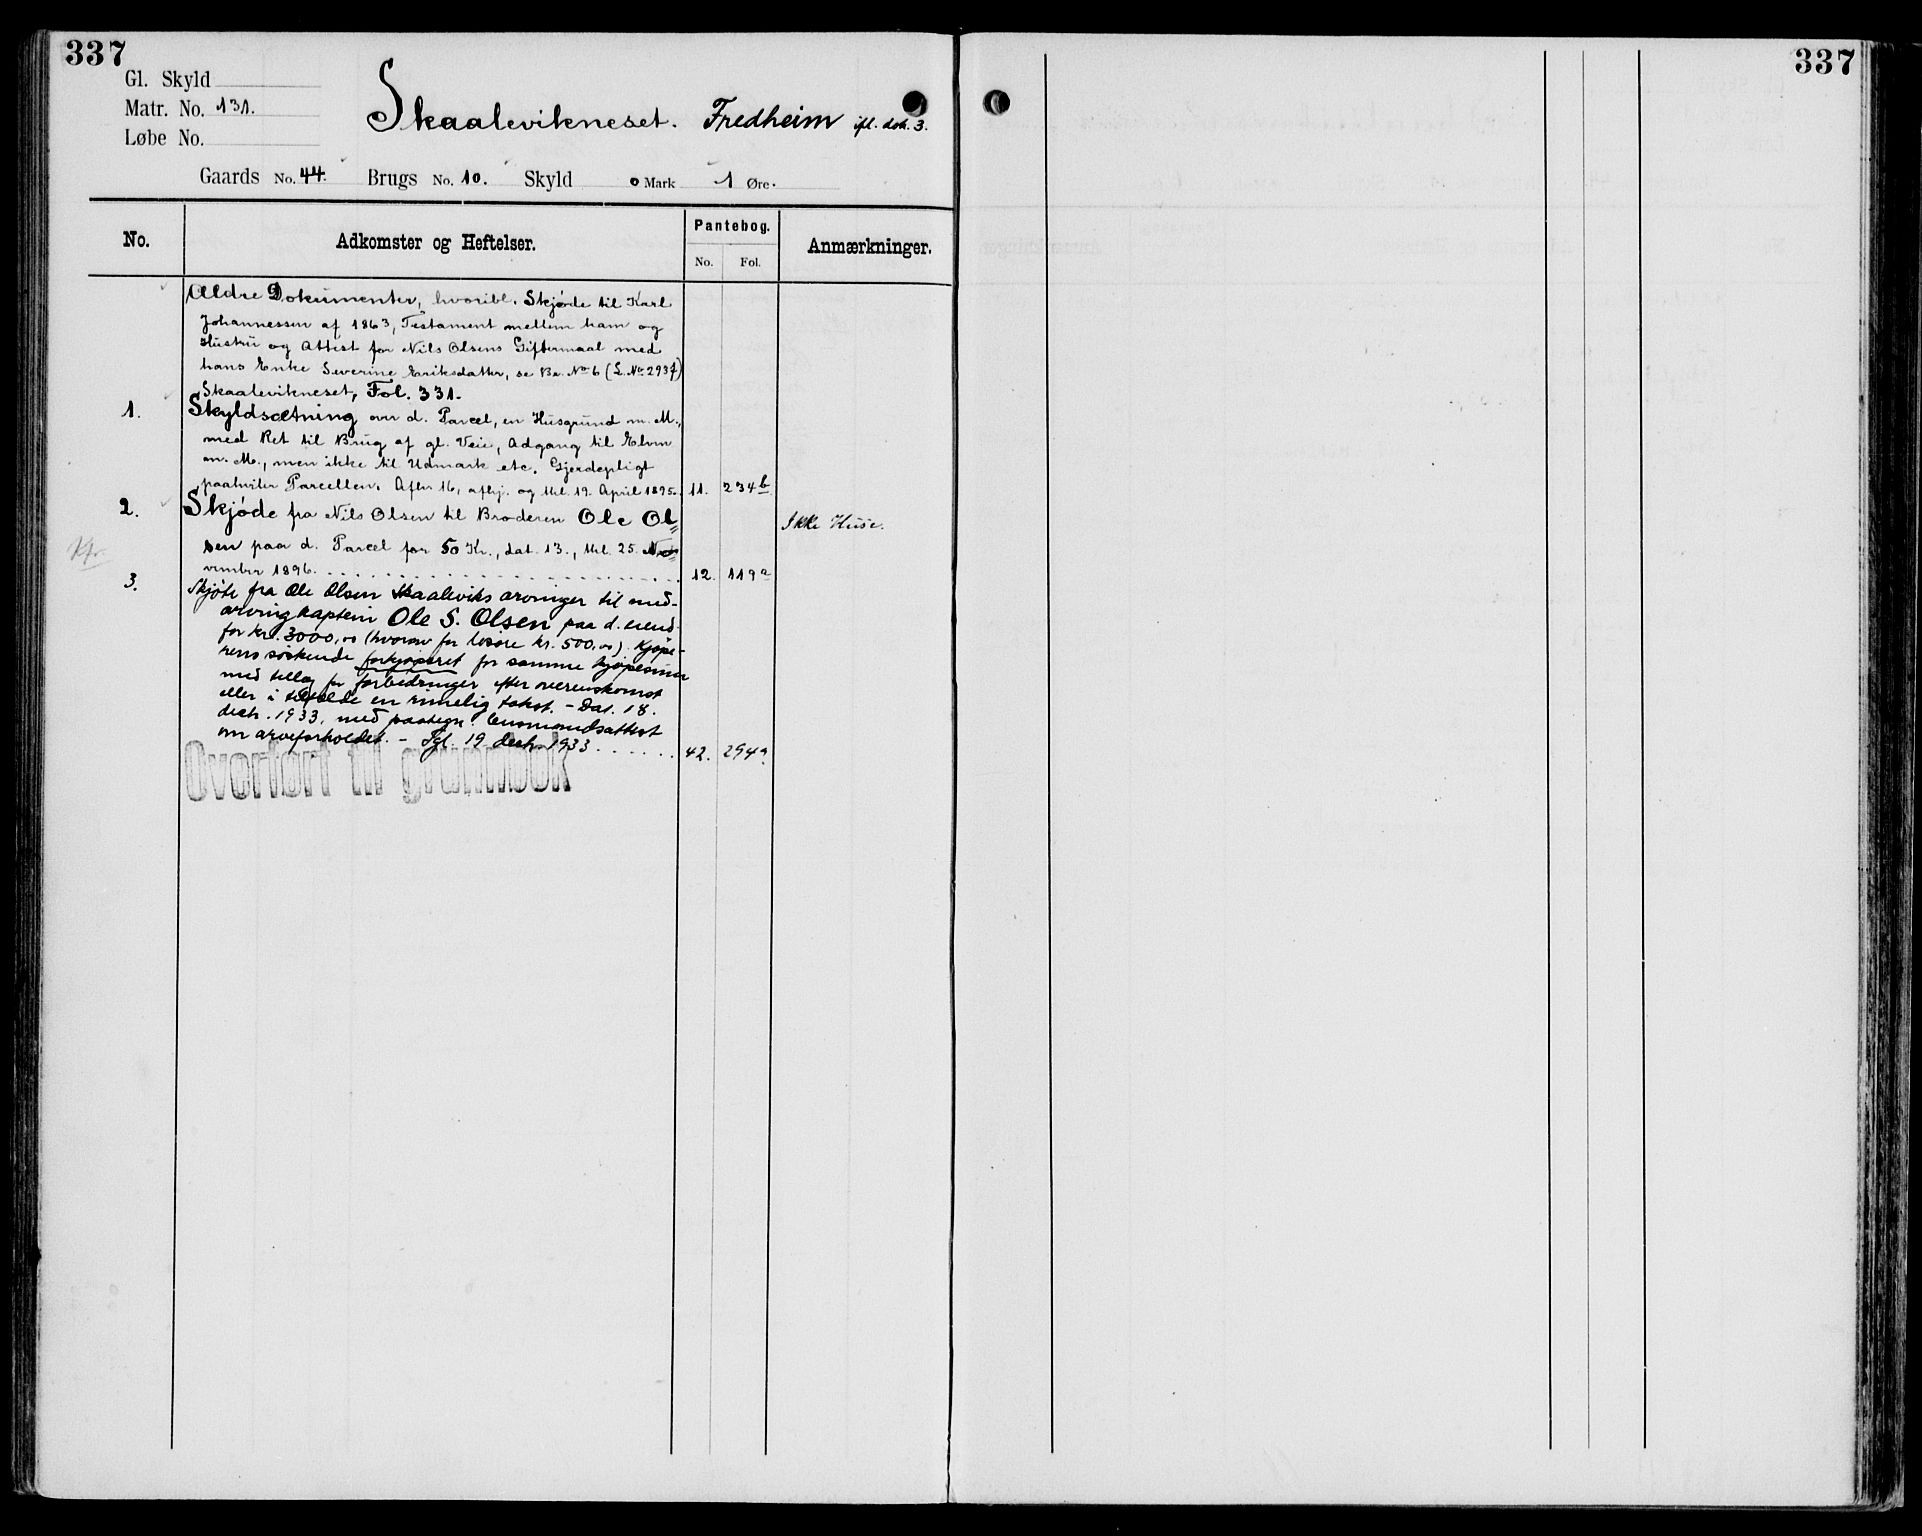 337
337
Gl. Skyld
Matr. No. 131.
Løbe No.
Skaalevikneset. Fredheim ifl. dok. 3.
Gaards No. 44. Brugs No. 10. Skyld 0 Mark 1 Øre.
No. Adkomster og Heftelser. Pantebog. Anmærkninger.
No. Fol.
Ældre Dokumenter, hvoribl. Skjøde til Karl
Johannessen af 1863, Testament mellem ham og
Hustru og Attest for Nils Olsens Giftermaal med
hans Enke Severine Eriksdatter, se Br. No 6 (L. No 293f)
Skaalevikneset, Fol. 331.
1. Skyldsætning over d. Parcel, en Husgrund m. M.,
med Ret til Brug af gl. Veie, Adgang til Elven
m. M., men ikke til Udmark etc. Gjerdepligt
paahviler Parcellen. Afhr 16, afhj. og thl. 19. April 1895. 11. 234b
2. Skjøde fra Nils Olsen til Broderen Ole Ol=
Ikke Huse.
sen paa d. Parcel for 50 Kr., dat. 13., thl. 25. No=
Kfr.
vember 1896. 12. 119a
3. Skjøte fra Ole Olsen Skaaleviks arvinger til med-
arving kaptein Ole S. Olsen paa d. eiend.
for kr. 3000,00 (hvorav for løsøre kr. 500,00). Kjøpe-
rens søskende forkjøpsret for samme kjøpesum
med tillæg for forbedringer efter overenskomst
eller i tilfælde en rimelig takst. - Dat. 18.
decbr. 1933, med paategn. lensmandsattest
om arveforholdet. - Tgl. 19 decbr. 1933 42. 294a
Overført til grunnbok